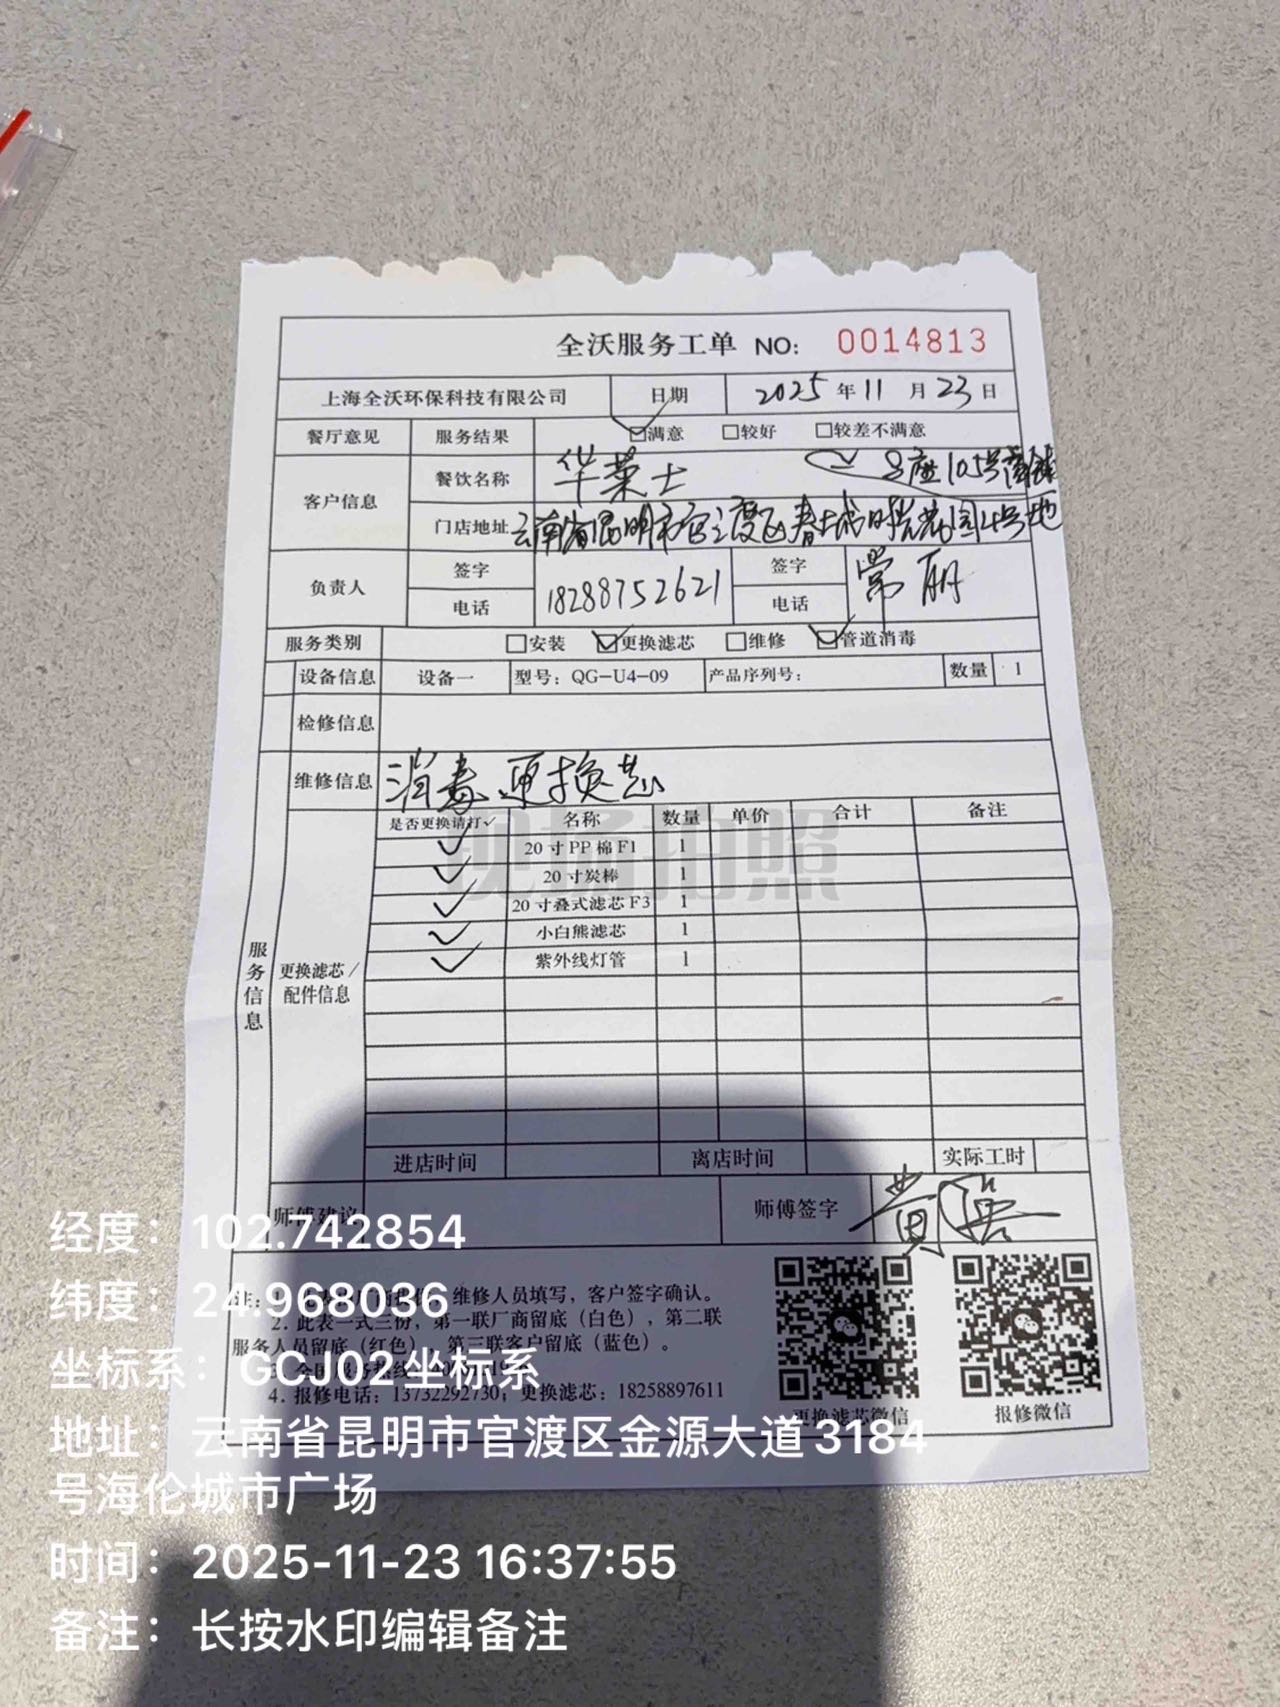 全沃服务工单 NO: 0014813
上海全沃环保科技有限公司 日期 2025 年 11 月 23 日
餐厅意见 服务结果 ☑满意 □较好 □较差不满意
客户信息 餐饮名称 华莱士 号座105号商铺
门店地址 云南省昆明市官渡区春城时光花园4号地
负责人 签字 18288752621 签字 常丽
电话 电话
服务类别 □安装 ☑更换滤芯 □维修 ☑管道消毒
设备信息 设备一 型号：QG-U4-09 产品序列号： 数量 1
检修信息
维修信息 消毒.更换芯
服务信息
更换滤芯/配件信息
是否更换请打✓ 名称 数量 单价 合计 备注
✓ 20寸PP棉F1 1
✓ 20寸炭棒 1
✓ 20寸叠式滤芯F3 1
✓ 小白熊滤芯 1
✓ 紫外线灯管 1
现场拍照
进店时间 离店时间 实际工时
师傅建议 师傅签字 黄
注： 维修人员填写，客户签字确认。
2. 此表一式三份，第一联厂商留底（白色），第二联
服务人员留底（红色），第三联客户留底（蓝色）。
3. 全国服务热线
4. 报修电话：13732292730；更换滤芯：18258897611
更换滤芯微信 报修微信
经度：102.742854
纬度：24.968036
坐标系：GCJ02坐标系
地址：云南省昆明市官渡区金源大道3184
号海伦城市广场
时间：2025-11-23 16:37:55
备注：长按水印编辑备注